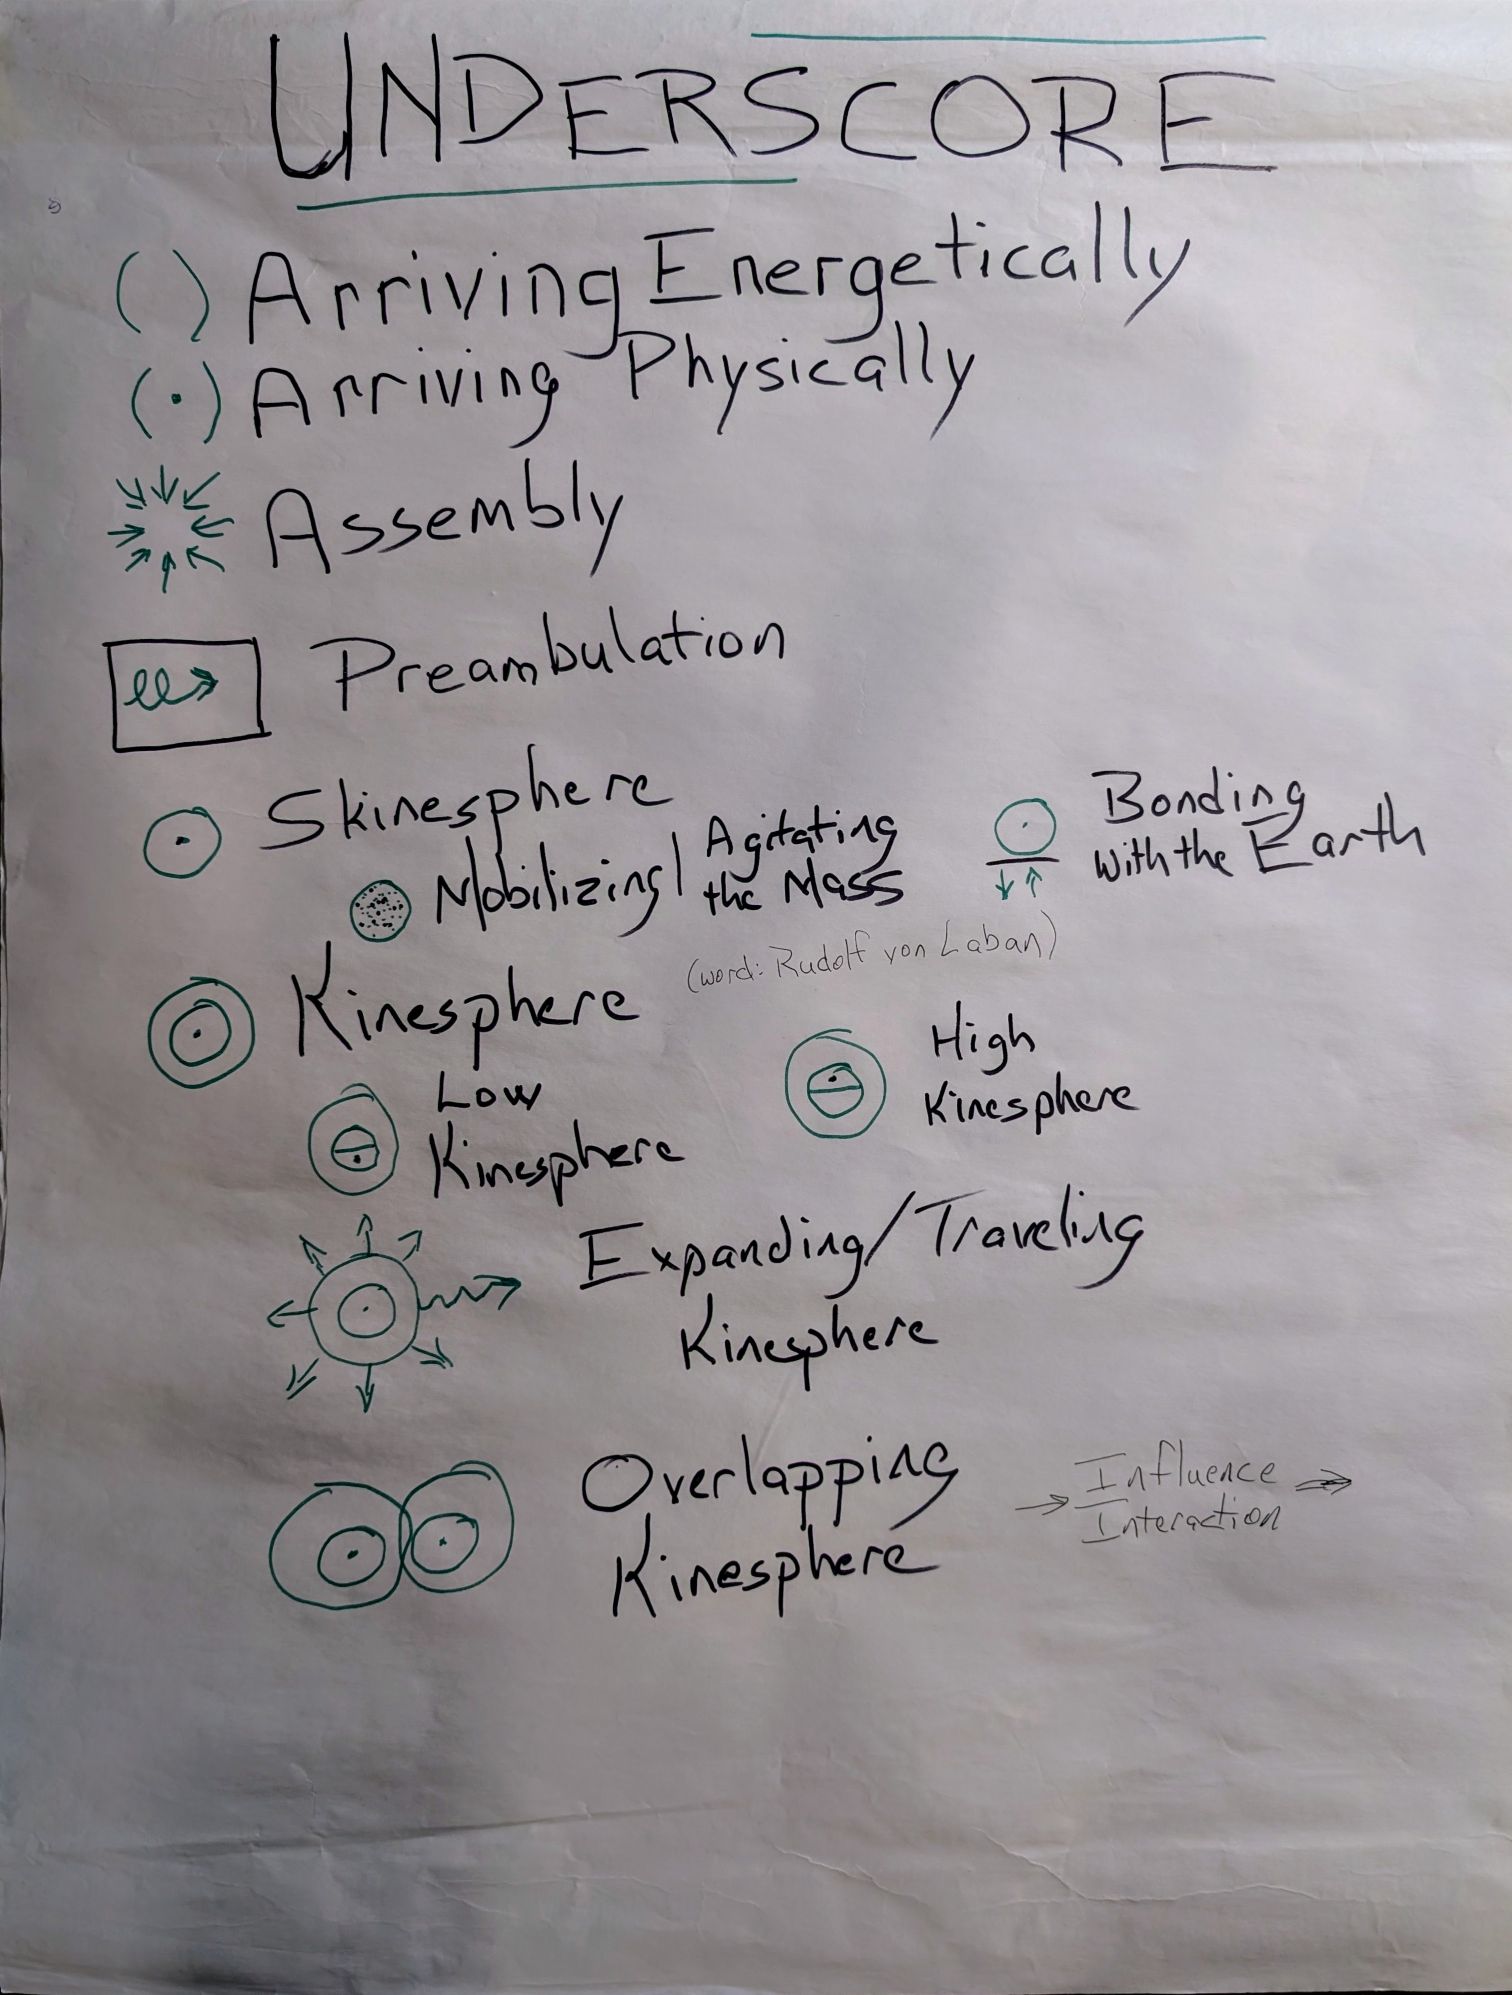 UNDERSCORE
( ) Arriving Energetically
(•) Arriving Physically
Assembly
Preambulation
Skinesphere
Mobilizing/ Agitating
the Mass
Bonding
with the Earth
Kinesphere
(word: Rudolf von Laban)
Low
Kinesphere
High
Kinesphere
Expanding/Traveling
Kinesphere
Overlapping
Kinesphere
→ Influence →
Interaction